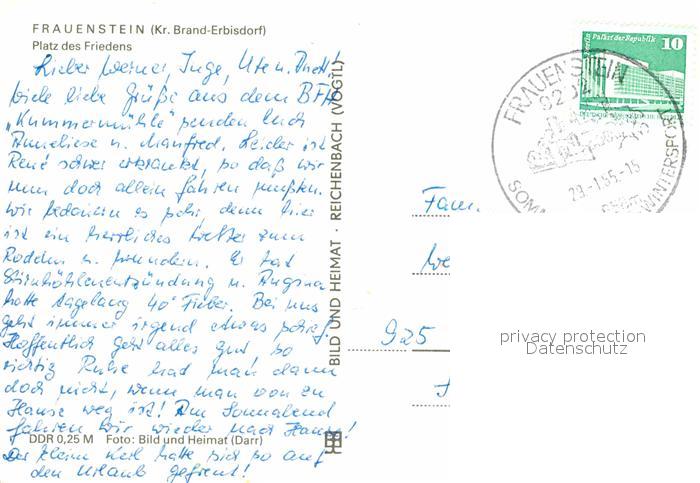 FRAUENSTEIN (Kr. Brand-Erbisdorf)
Platz des Friedens
Lieber Werner, Inge, Ute u.
viele liebe Grüße aus dem BFH
„Kummermühle" senden Euch
Anneliese u. Manfred. Leider ist
René schwer erkrankt, so daß wir
nun doch allein fahren mußten.
Wir bedauern es sehr, denn hier
ist ein herrliches Wetter zum
Rodeln u. wandern. Er hat
Stirnhöhlenentzündung u. Angina
hatte tagelang 40° Fieber. Bei uns
geht immer irgend etwas schief.
Hoffentlich geht alles gut, so
richtig Ruhe had man dann
doch nicht, wenn man von zu
Hause weg ist! Am Sonnabend
fahren wir wieder nach Hause!
Der kleine Kerl hatte sich so auf
den Urlaub gefreut!
DDR 0,25 M Foto: Bild und Heimat (Darr)
BILD UND HEIMAT · REICHENBACH (VOGTL)
Palast der Republik
10
FRAUENSTEIN
29.-1.85.-15
WINTERSPORT
Fam.
We
925
privacy protection
Datenschutz